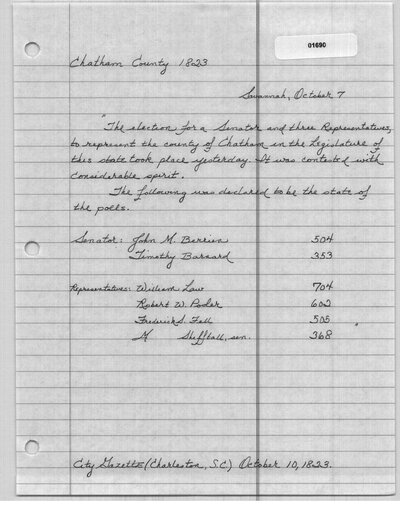 01690
Chatham County 1823
Savannah, October 7
"The election for a Senator and three Representatives,
to represent the county of Chatham in the Legislature of
this state took place yesterday. It was contested with
considerable spirit.
The following was declared to be the state of
the polls.
Senator: John M. Berrien 504
Timothy Barnard 353
Representatives: William Law 704
Robert W. Pooler 602
Frederick S. Fell 505
M Sheftall, sen. 368 "
City Gazette (Charleston, S.C.) October 10, 1823.